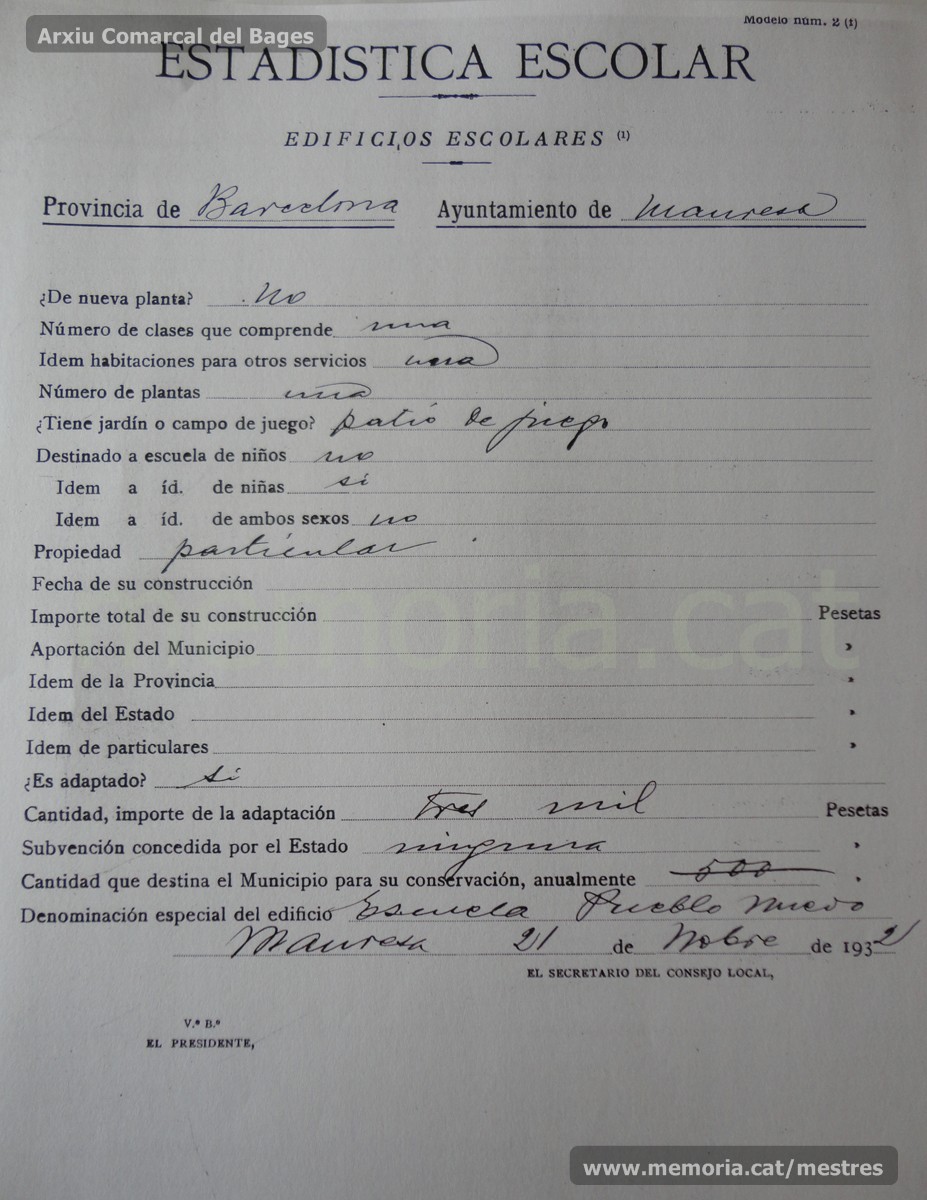 Modelo núm. 2 (1)
Arxiu Comarcal del Bages
ESTADISTICA ESCOLAR
EDIFICIOS ESCOLARES (1)
Provincia de Barcelona Ayuntamiento de Manresa
¿De nueva planta? No
Número de clases que comprende una
Idem habitaciones para otros servicios una
Número de plantas una
¿Tiene jardín o campo de juego? patio de juego
Destinado a escuela de niños no
Idem a íd. de niñas si
Idem a íd. de ambos sexos no
Propiedad particular
Fecha de su construcción
Importe total de su construcción Pesetas
Aportación del Municipio »
Idem de la Provincia »
Idem del Estado »
Idem de particulares »
¿Es adaptado? si
Cantidad, importe de la adaptación tres mil Pesetas
Subvención concedida por el Estado ninguna »
Cantidad que destina el Municipio para su conservación, anualmente 500 »
Denominación especial del edificio Escuela Pueblo Nuevo
Manresa 21 de Nobre de 1932
EL SECRETARIO DEL CONSEJO LOCAL,
V.º B.º
EL PRESIDENTE,
memoria.cat
www.memoria.cat/mestres